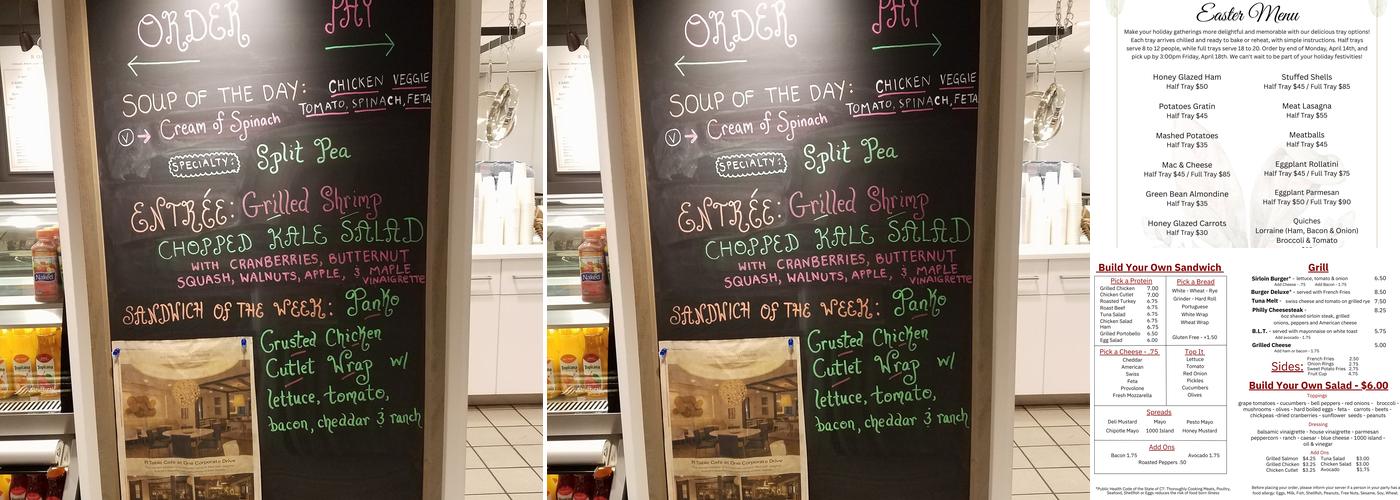 ORDER
PAY
SOUP OF THE DAY: CHICKEN VEGGIE
TOMATO, SPINACH, FETA
V → Cream of Spinach
SPECIALTY: Split Pea
ENTRÉE: Grilled Shrimp
CHOPPED KALE SALAD
WITH CRANBERRIES, BUTTERNUT
SQUASH, WALNUTS, APPLE, & MAPLE
VINAIGRETTE
SANDWICH OF THE WEEK: Panko
Crusted Chicken
Cutlet Wrap w/
lettuce, tomato,
bacon, cheddar & ranch
Naked
Tropicana
A Table Cafe at One Corporate Drive
ORDER
PAY
SOUP OF THE DAY: CHICKEN VEGGIE
TOMATO, SPINACH, FETA
V → Cream of Spinach
SPECIALTY: Split Pea
ENTRÉE: Grilled Shrimp
CHOPPED KALE SALAD
WITH CRANBERRIES, BUTTERNUT
SQUASH, WALNUTS, APPLE, & MAPLE
VINAIGRETTE
SANDWICH OF THE WEEK: Panko
Crusted Chicken
Cutlet Wrap w/
lettuce, tomato,
bacon, cheddar & ranch
Naked
Tropicana
A Table Cafe at One Corporate Drive
Easter Menu
Make your holiday gatherings more delightful and memorable with our delicious tray options!
Each tray arrives chilled and ready to bake or reheat, with simple instructions. Half trays
serve 8 to 12 people, while full trays serve 18 to 20. Order by end of Monday, April 14th, and
pick up by 3:00pm Friday, April 18th. We can't wait to be part of your holiday festivities!
Honey Glazed Ham
Half Tray $50
Potatoes Gratin
Half Tray $45
Mashed Potatoes
Half Tray $35
Mac & Cheese
Half Tray $45 / Full Tray $85
Green Bean Almondine
Half Tray $35
Honey Glazed Carrots
Half Tray $30
Stuffed Shells
Half Tray $45 / Full Tray $85
Meat Lasagna
Half Tray $55
Meatballs
Half Tray $45
Eggplant Rollatini
Half Tray $45 / Full Tray $75
Eggplant Parmesan
Half Tray $50 / Full Tray $90
Quiches
Lorraine (Ham, Bacon & Onion)
Broccoli & Tomato
Build Your Own Sandwich
Pick a Protein
Grilled Chicken 7.00
Chicken Cutlet 7.00
Roasted Turkey 6.75
Roast Beef 6.75
Tuna Salad 6.75
Chicken Salad 6.75
Ham 6.75
Grilled Portobello 6.50
Egg Salad 6.00
Pick a Bread
White - Wheat - Rye
Grinder - Hard Roll
Portuguese
White Wrap
Wheat Wrap
Gluten Free - +1.50
Pick a Cheese - .75
Cheddar
American
Swiss
Feta
Provolone
Fresh Mozzarella
Top It
Lettuce
Tomato
Red Onion
Pickles
Cucumbers
Olives
Spreads
Deli Mustard Mayo Pesto Mayo
Chipotle Mayo 1000 Island Honey Mustard
Add Ons
Bacon 1.75 Avocado 1.75
Roasted Peppers .50
*Public Health Code of the State of CT: Thoroughly Cooking Meats, Poultry,
Seafood, Shellfish or Eggs reduces the risk of food born illness
Grill
Sirloin Burger* - lettuce, tomato & onion 6.50
Add Cheese - .75 Add Bacon -1.75
Burger Deluxe* - served with French Fries 8.50
Tuna Melt - swiss cheese and tomato on grilled rye 7.50
Philly Cheesesteak - 8.25
6oz shaved sirloin steak, grilled
onions, peppers and American cheese
B.L.T. - served with mayonnaise on white toast 5.75
Add avocado - 1.75
Grilled Cheese 5.00
Add ham or bacon - 1.75
Sides:
French Fries 2.50
Onion Rings 2.75
Sweet Potato Fries 2.75
Fruit Cup 4.75
Build Your Own Salad - $6.00
Toppings
grape tomatoes - cucumbers - bell peppers - red onions - broccoli -
mushrooms - olives - hard boiled eggs - feta - carrots - beets -
chickpeas -dried cranberries - sunflower seeds - peanuts
Dressing
balsamic vinaigrette - house vinaigrette - parmesan
peppercorn - ranch - caesar - blue cheese - 1000 island -
oil & vinegar
Add Ons
Grilled Salmon $4.25 Tuna Salad $3.00
Grilled Chicken $3.25 Chicken Salad $3.00
Chicken Cutlet $3.25 Avocado $1.75
Before placing your order, please inform your server if a person in your party has a
food allergy: Eggs, Milk, Fish, Shellfish, Peanuts, Tree Nuts, Sesame, Soy